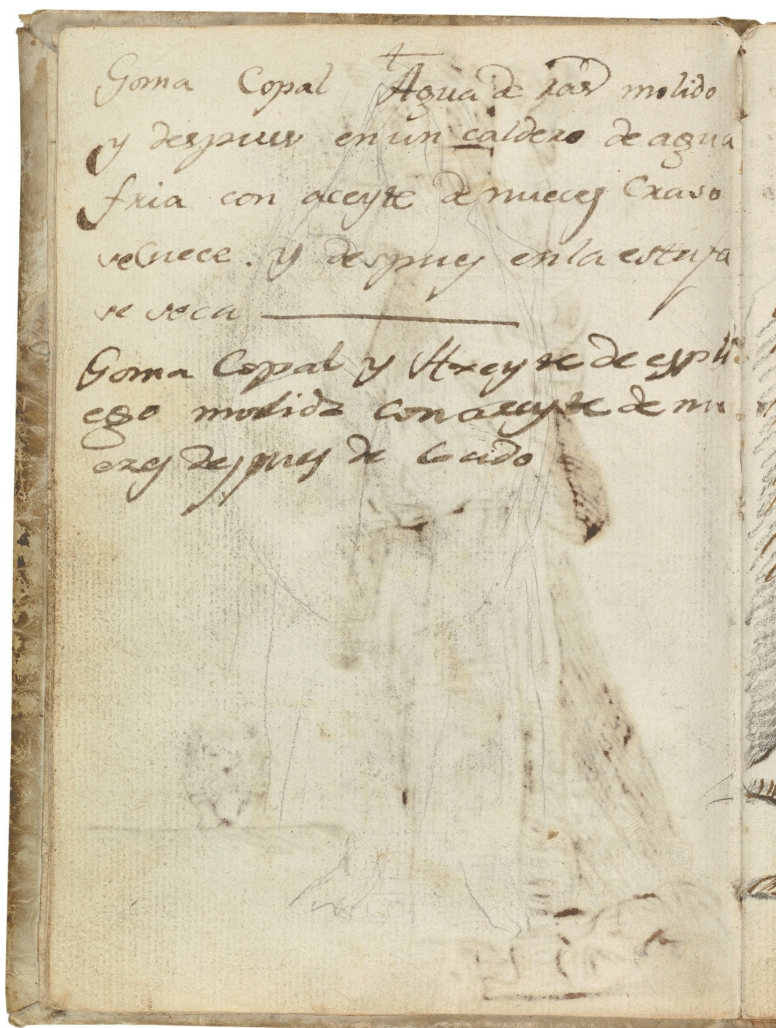 Goma Copal Agua de ras molido
y despues en un caldero de agua
fria con aceyte de nueces Craso
se Cuece. y despues en la estufa
se seca
Goma Copal y Azeyte de espli
ego molido con aceyte de nu
ezes despues de Cocido